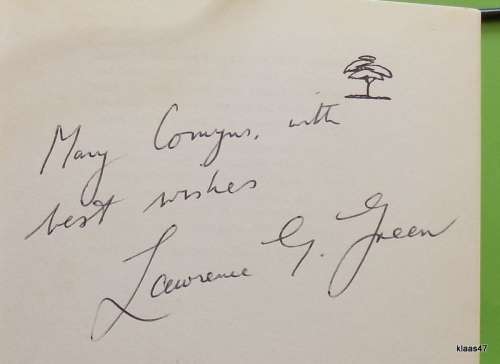 Mary Comyns, with
best wishes
Lawrence G. Green
klaas47